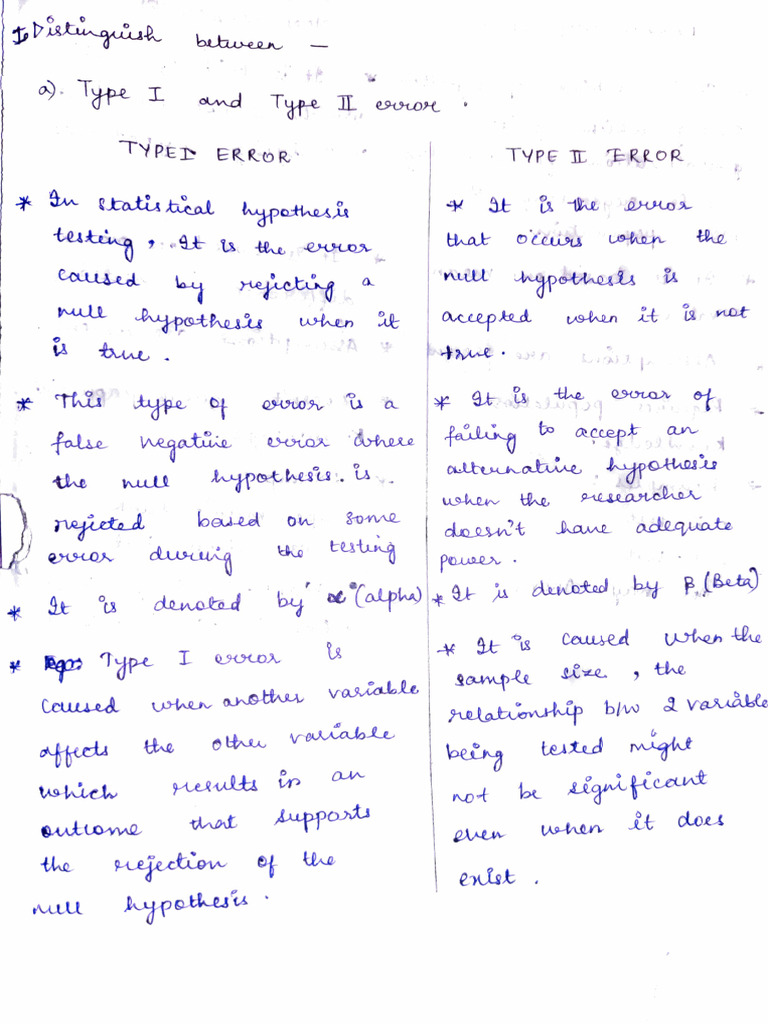 I. Distinguish between —
a). Type I and Type II error .
TYPE I ERROR
* In statistical hypothesis
testing, It is the error
caused by rejicting a
null hypothesis when it
is true .
* This type of error is a
false negative error where
the null hypothesis. is
rejicted based on some
error during the testing
* It is denoted by α (alpha)
* Type I error is
caused when another variable
affects the other variable
which results in an
outcome that supports
the rejection of the
null hypothesis .
TYPE II ERROR
* It is the error
that occurs when the
null hypothesis is
accepted when it is not
true .
* It is the error of
failing to accept an
alternative hypothesis
when the researcher
doesn't have adequate
power .
* It is denoted by β (Beta)
* It is caused when the
sample size , the
relationship b/w 2 variable
being tested might
not be significant
even when it does
exist .